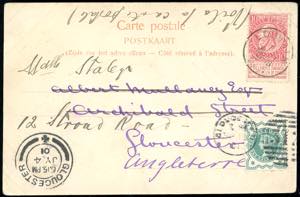 (Voilà la carte postale)
Carte postale
POSTKAART
Zijde voor het adres alleen. — Côté réservé à l'adresse.
Albert Mullaney Esq
Archibald Street
12 Stroud Road
Gloucester
Angleterre
GLOUCESTER
6.15 PM
JY 4
01